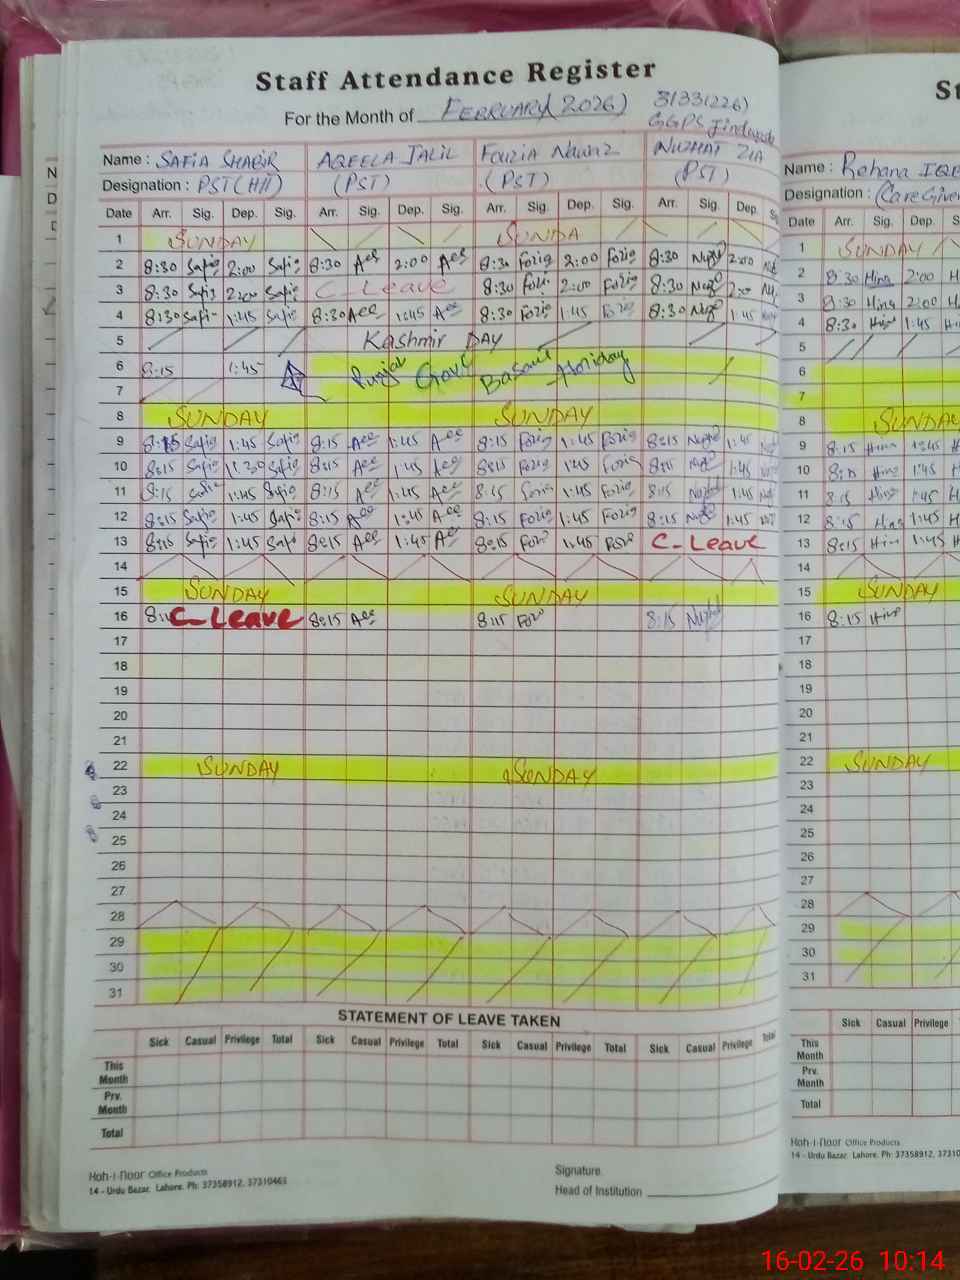 Staff Attendance Register
For the Month of FEBRUARY (2026) 31331226)
GGPS
Name : SAFIA SHABIR AQEELA JALIL FOUZIA Nawaz NUZHAT ZIA
Designation : PST(HT) (PST) (PST) (PST)
Date Arr. Sig. Dep. Sig. Arr. Sig. Dep. Sig. Arr. Sig. Dep. Sig. Arr. Sig. Dep.
1 SUNDAY SUNDA
2 8:30 Safia 2:00 Safia 8:30 Aee 2:00 Aee 8:30 Fozia 2:00 Fozia 8:30 2:00
3 8:30 Safia 2:00 Safia C-Leave 8:30 Fozi 2:00 Fozia 8:30 2:00
4 8:30 Safia 1:45 Safia 8:30 Aee 1:45 Aee 8:30 Fozia 1:45 Fozia 8:30 1:45
5 Kashmir DAY
6 8:15 1:45 Punjab Govt Basant Holiday
7
8 SUNDAY SUNDAY
9 8:15 Safia 1:45 Safia 8:15 Aee 1:45 Aee 8:15 Fozia 1:45 Fozia 8:15 1:45
10 8:15 Safia Safia 8:15 Aee 1:45 Aee 8:15 Fozia 1:45 Fozia 8:15 1:45
11 8:15 Safia 1:45 Safia 8:15 Aee 1:45 Aee 8:15 Fozia 1:45 Fozia 8:15 1:45
12 8:15 Safia 1:45 Safia 8:15 Aee 1:45 Aee 8:15 Fozia 1:45 Fozia 8:15 1:45
13 8:15 Safia 1:45 Safi 8:15 Aee 1:45 Aee 8:15 Fozi 1:45 C-Leave
14
15 SUNDAY SUNDAY
16 C-Leave 8:15 Aee 8:15 Fozi 8:15
17
18
19
20
21
22 SUNDAY SUNDAY
23
24
25
26
27
28
29
30
31
STATEMENT OF LEAVE TAKEN
Sick Casual Privilege Total Sick Casual Privilege Total Sick Casual Privilege Total Sick Casual Privilege Total
This Month
Prv. Month
Total
Koh-i-Noor Office Products
14 - Urdu Bazar. Lahore. Ph: 37358912, 37310463
Signature
Head of Institution
St
Name : Rehana
Designation : (CareGiver
Date Arr. Sig. Dep.
1 SUNDAY
2 8:30 Hina 2:00 H
3 8:30 Hina 2:00 H
4 8:30 Hina 1:45 H
5
6
7
8 SUNDAY
9 8:15 Hina 1:45 H
10 8:15 Hina 1:45 H
11 8:15 Hina 1:45 H
12 8:15 Hina 1:45 H
13 8:15 Hina 1:45 H
14
15 SUNDAY
16 8:15 Hina
17
18
19
20
21
22 SUNDAY
23
24
25
26
27
28
29
30
31
Sick Casual Privilege
This Month
Prv. Month
Total
Koh-i-Noor Office Products
14 - Urdu Bazar. Lahore. Ph: 37358912, 3731
16-02-26 10:14